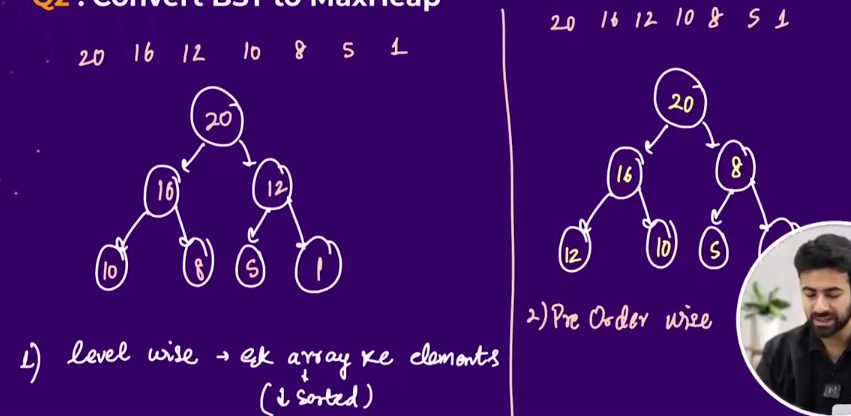 Q2: Convert BST to MaxHeap
20 16 12 10 8 5 1
20
16 12
10 8 5 1
1) level wise → ek array ke elements
(↓ Sorted)
20 16 12 10 8 5 1
20
16 8
12 10 5
2) Pre Order wise